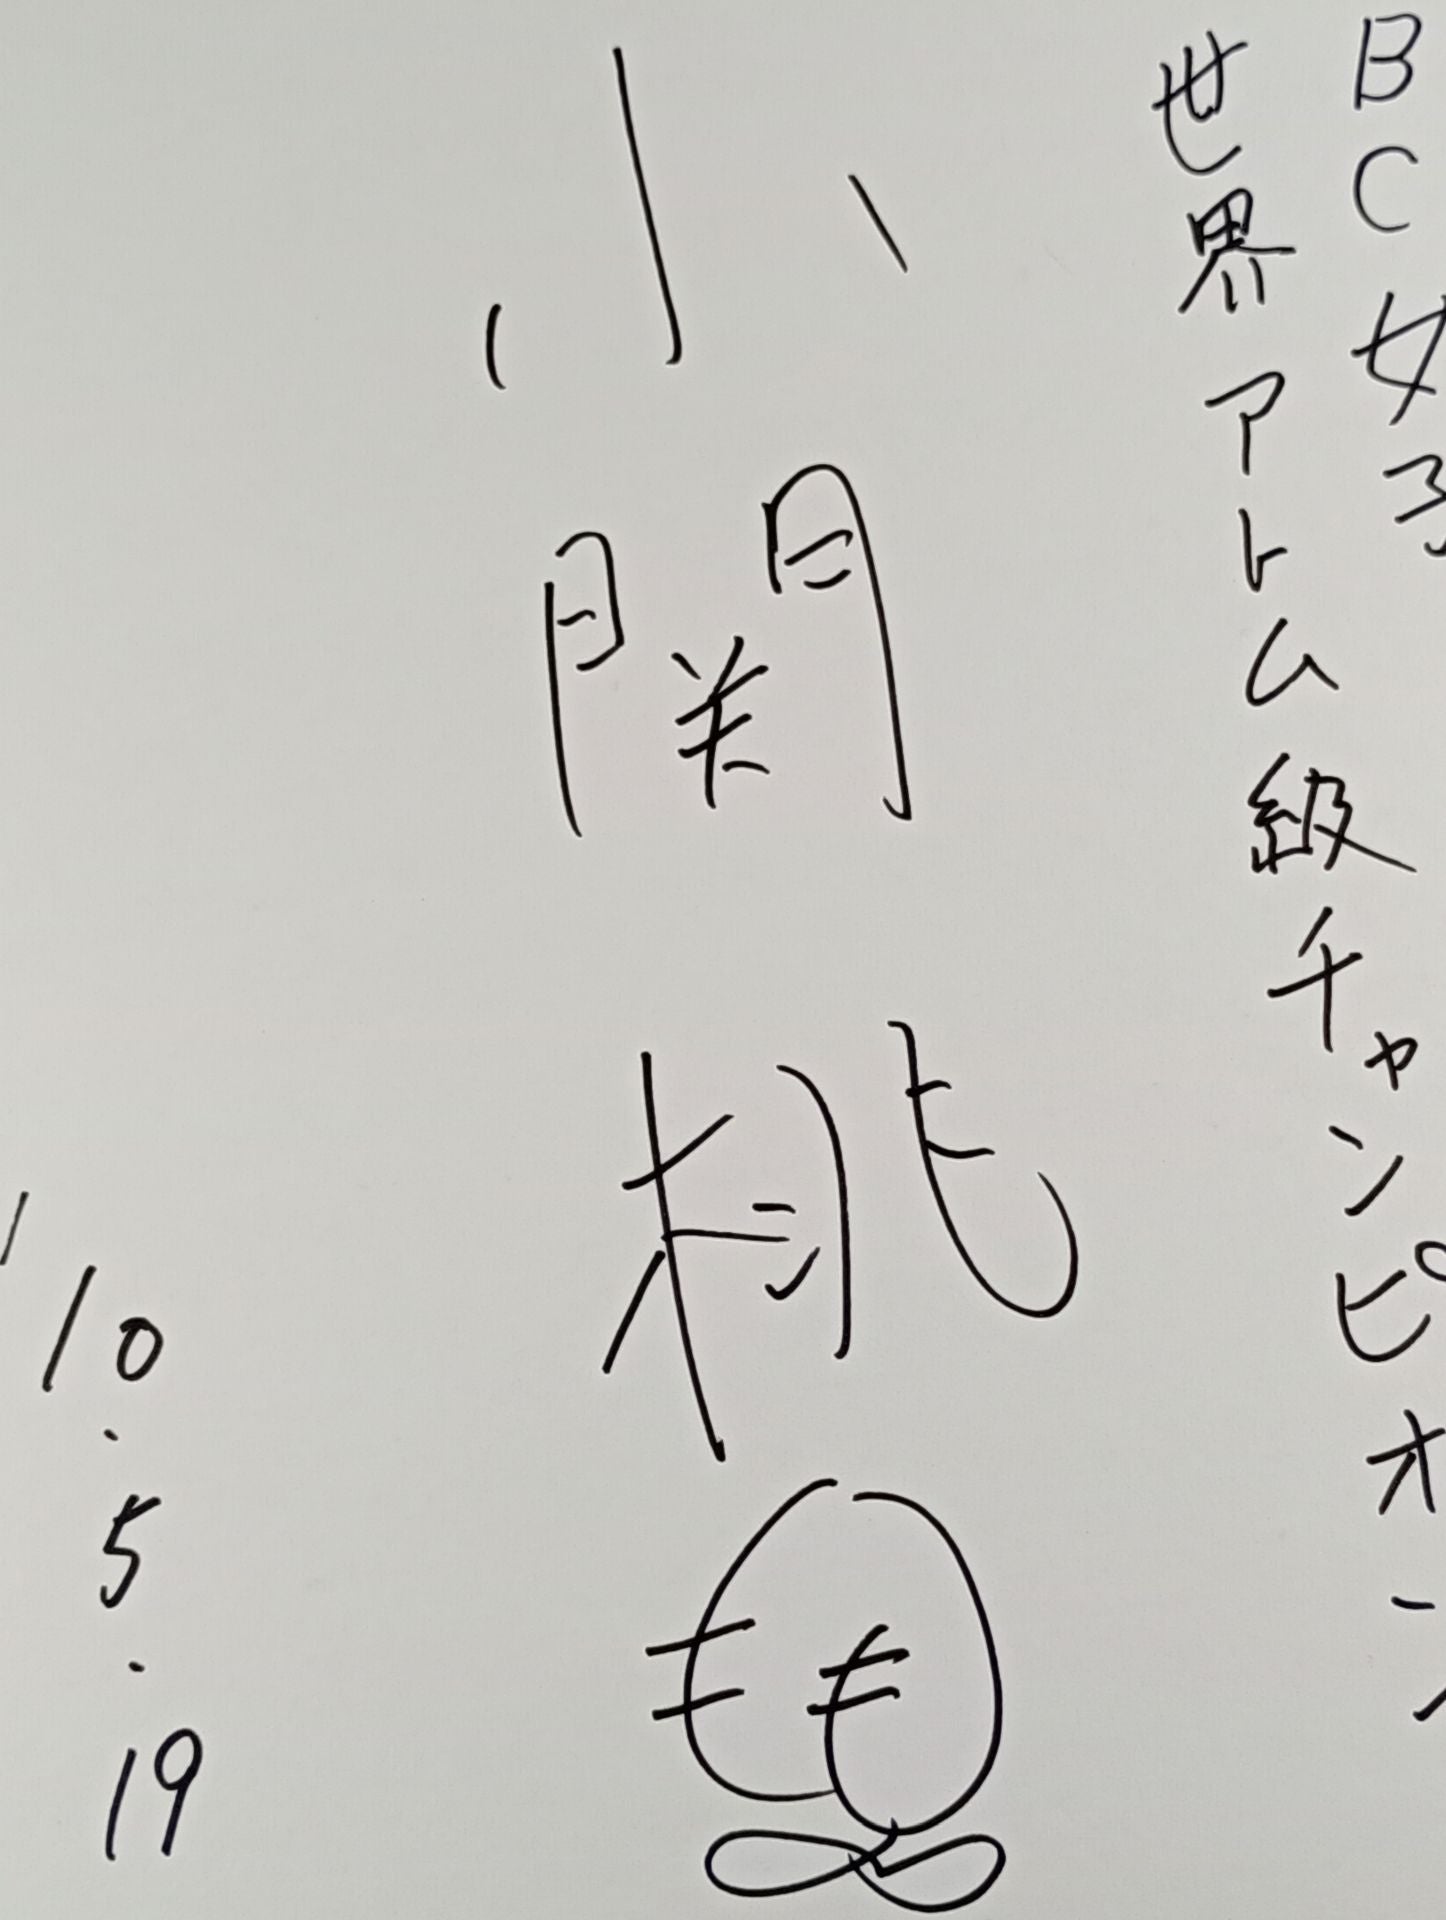 BC女子
世界アトム級チャンピオン
小関桃
10.5.19